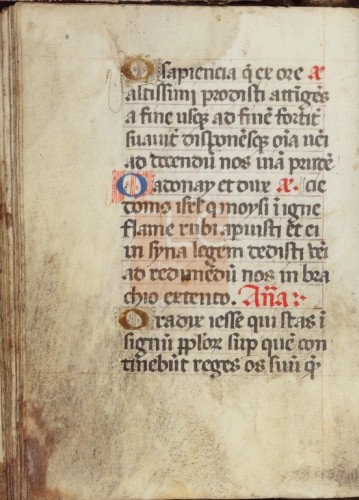 O sapiencia q̄ ex ore a
altissimi prodisti attīgēs
a fine usq; ad finē fortit̄
suavit̄ disponēsq; oīa veī
ad docendū nos viā prudē
O adonay et dux a. cie
domo isrl̄ q̄ moysi ī igne
flame rubi apuisti et ei
in syna legem dedisti veī
ad redimēdū nos in bra
chio extento. Añā:
O radix iesse qui stas ī
signū pplor̄ sup quē con
tinebūt reges os suū q̄